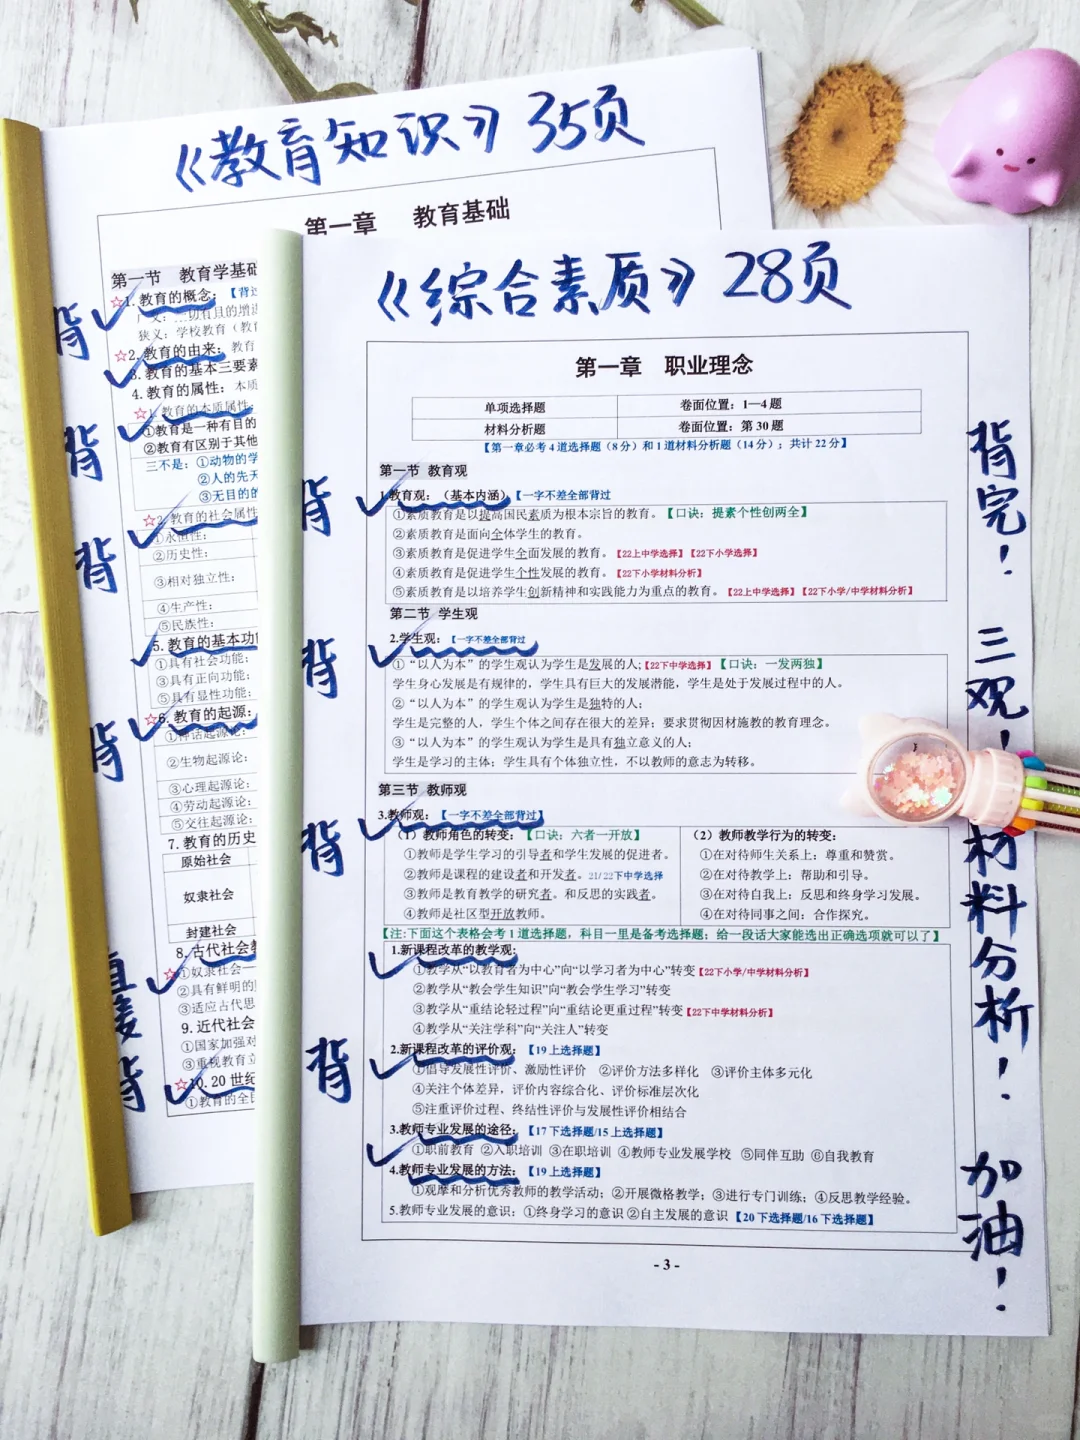 《教育知识》35页
第一章 教育基础
第一节 教育学基础
☆1.教育的概念：【背过
狭义：学校教育（教育
☆2.教育的由来：教育
3.教育的基本三要素
4.教育的属性：本质
☆1.教育的本质属性：
①教育是一种有目的
②教育有区别于其他
三不是：①动物的学
②人的先天
③无目的的
☆2.教育的社会属性
①永恒性：
②历史性：
③相对独立性：
④生产性：
⑤民族性：
5.教育的基本功能
①具有社会功能：
③具有正向功能：
⑤具有显性功能：
☆6.教育的起源：
①神话起源论：
②生物起源论：
③心理起源论：
④劳动起源论：
⑤交往起源论：
7.教育的历史
原始社会
奴隶社会
封建社会
8.古代社会教
☆①奴隶社会—
②具有鲜明的
③适应古代思
9.近代社会
①国家加强对
③重视教育立
☆10.20世纪
①教育的全民
背
背
背
背
直接
背
《综合素质》28页
第一章 职业理念
单项选择题 卷面位置：1—4题
材料分析题 卷面位置：第30题
【第一章必考4道选择题（8分）和1道材料分析题（14分）；共计22分】
第一节 教育观
1.教育观：（基本内涵）【一字不差全部背过
①素质教育是以提高国民素质为根本宗旨的教育。【口诀：提素个性创两全】
②素质教育是面向全体学生的教育。
③素质教育是促进学生全面发展的教育。【22上中学选择】【22下小学选择】
④素质教育是促进学生个性发展的教育。【22下小学材料分析】
⑤素质教育是以培养学生创新精神和实践能力为重点的教育。【22上中学选择】【22下小学/中学材料分析】
第二节 学生观
2.学生观：【一字不差全部背过
①“以人为本”的学生观认为学生是发展的人;【22下中学选择】【口诀：一发两独】
学生身心发展是有规律的，学生具有巨大的发展潜能，学生是处于发展过程中的人。
②“以人为本”的学生观认为学生是独特的人；
学生是完整的人，学生个体之间存在很大的差异；要求贯彻因材施教的教育理念。
③“以人为本”的学生观认为学生是具有独立意义的人；
学生是学习的主体；学生具有个体独立性，不以教师的意志为转移。
第三节 教师观
3.教师观：【一字不差全部背过】
（1）教师角色的转变：【口诀：六者一开放】
①教师是学生学习的引导者和学生发展的促进者。
②教师是课程的建设者和开发者。21/22下中学选择
③教师是教育教学的研究者。和反思的实践者。
④教师是社区型开放教师。
（2）教师教学行为的转变：
①在对待师生关系上：尊重和赞赏。
②在对待教学上：帮助和引导。
③在对待自我上：反思和终身学习发展。
④在对待同事之间：合作探究。
【注:下面这个表格会考1道选择题，科目一里是备考选择题；给一段话大家能选出正确选项就可以了】
1.新课程改革的教学观:
①教学从“以教育者为中心”向“以学习者为中心”转变【22下小学/中学材料分析】
②教学从“教会学生知识”向“教会学生学习”转变
③教学从“重结论轻过程”向“重结论更重过程”转变【22下中学材料分析】
④教学从“关注学科”向“关注人”转变
2.新课程改革的评价观:【19上选择题】
①倡导发展性评价、激励性评价 ②评价方法多样化 ③评价主体多元化
④关注个体差异，评价内容综合化、评价标准层次化
⑤注重评价过程、终结性评价与发展性评价相结合
3.教师专业发展的途径:【17下选择题/15上选择题】
①职前教育 ②入职培训 ③在职培训 ④教师专业发展学校 ⑤同伴互助 ⑥自我教育
4.教师专业发展的方法:【19上选择题】
①观摩和分析优秀教师的教学活动；②开展微格教学；③进行专门训练；④反思教学经验。
5.教师专业发展的意识：①终身学习的意识 ②自主发展的意识【20下选择题/16下选择题】
-3-
背
背
背
背
背完！
三观！
材料分析！
加油！